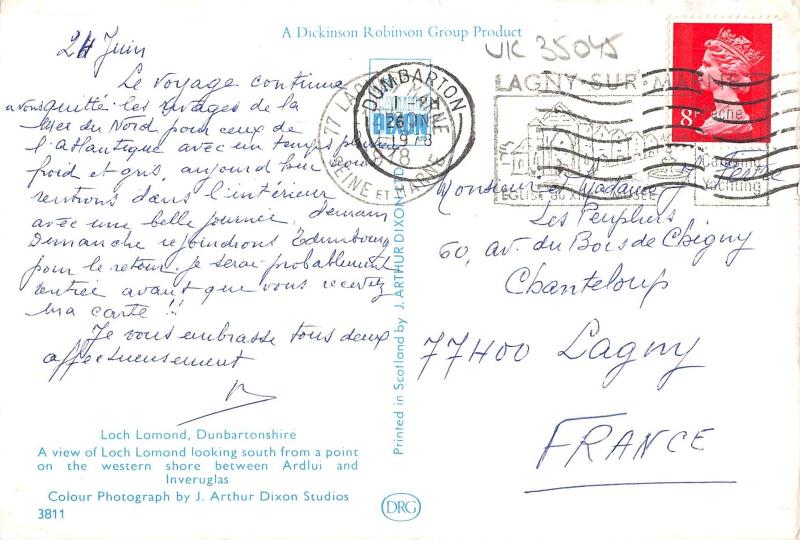 A Dickinson Robinson Group Product
UK 35045
24 Juin
Le voyage continue
avons quitté les rivages de la
Mer du Nord pour ceux de
l'Atlantique avec un temps
froid et gris, aujourd'hui nous
rentrons dans l'intérieur
avec une belle journée, demain
Dimanche rejoindrons Edimbourg
pour le retour. Je serai probablement
rentrée avant que vous recevez
ma carte !!
Je vous embrasse tous deux
affectueusement
LAGNY-SUR-MARNE
EGLISE DU MUSÉE
Camping
Yachting
77 LAGNY MARNE
SEINE ET MARNE
DUMBARTON
26 JUN
1978
DIXON
8P
Monsieur et Madame Festre
Les Peupliers
60, av. du Bois de Chigny
Chanteloup
77400 Lagny
FRANCE
Printed in Scotland by J. ARTHUR DIXON LTD.
Loch Lomond, Dunbartonshire
A view of Loch Lomond looking south from a point
on the western shore between Ardlui and
Inveruglas
Colour Photograph by J. Arthur Dixon Studios
3811
DRG